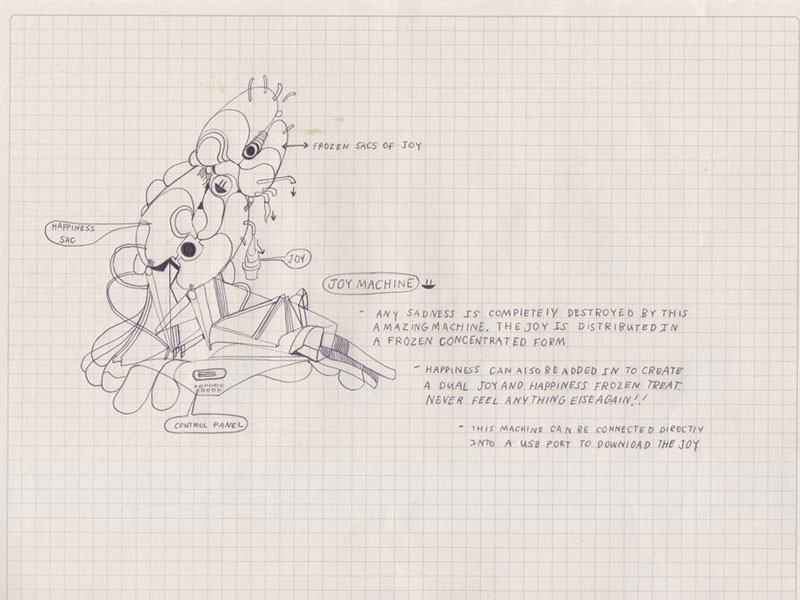 FROZEN SACS OF JOY
HAPPINESS
SAC
JOY
JOY MACHINE
- ANY SADNESS IS COMPLETELY DESTROYED BY THIS
AMAZING MACHINE. THE JOY IS DISTRIBUTED IN
A FROZEN CONCENTRATED FORM
- HAPPINESS CAN ALSO BE ADDED IN TO CREATE
A DUAL JOY AND HAPPINESS FROZEN TREAT.
NEVER FEEL ANYTHING ELSE AGAIN!!
CONTROL PANEL
- THIS MACHINE CAN BE CONNECTED DIRECTLY
INTO A USB PORT TO DOWNLOAD THE JOY